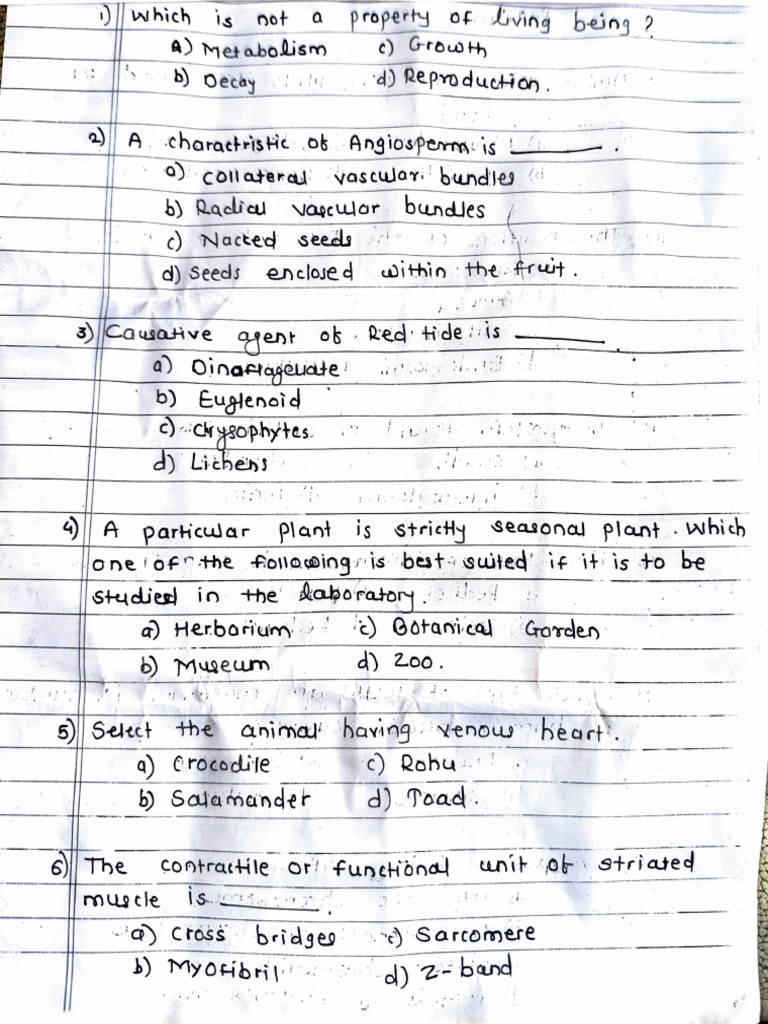 1) Which is not a property of living being ?
a) Metabolism c) Growth
b) Decay d) Reproduction.
2) A charactristic of Angiosperm is ______ .
a) collateral vascular bundles
b) Radial vascular bundles
c) Nacked seeds
d) Seeds enclosed within the fruit.
3) Causative agent of Red tide is ______ .
a) Dinoflagellate
b) Euglenoid
c) Chrysophytes
d) Lichens
4) A particular plant is strictly seasonal plant. Which
one of the following is best suited if it is to be
studied in the laboratory.
a) Herborium c) Botanical Gorden
b) Museum d) Zoo.
5) Select the animal having venous heart.
a) Crocodile c) Rohu
b) Salamander d) Toad.
6) The contractile or functional unit of striated
muscle is ______ .
a) Cross bridges c) Sarcomere
b) Myofibril d) Z-band